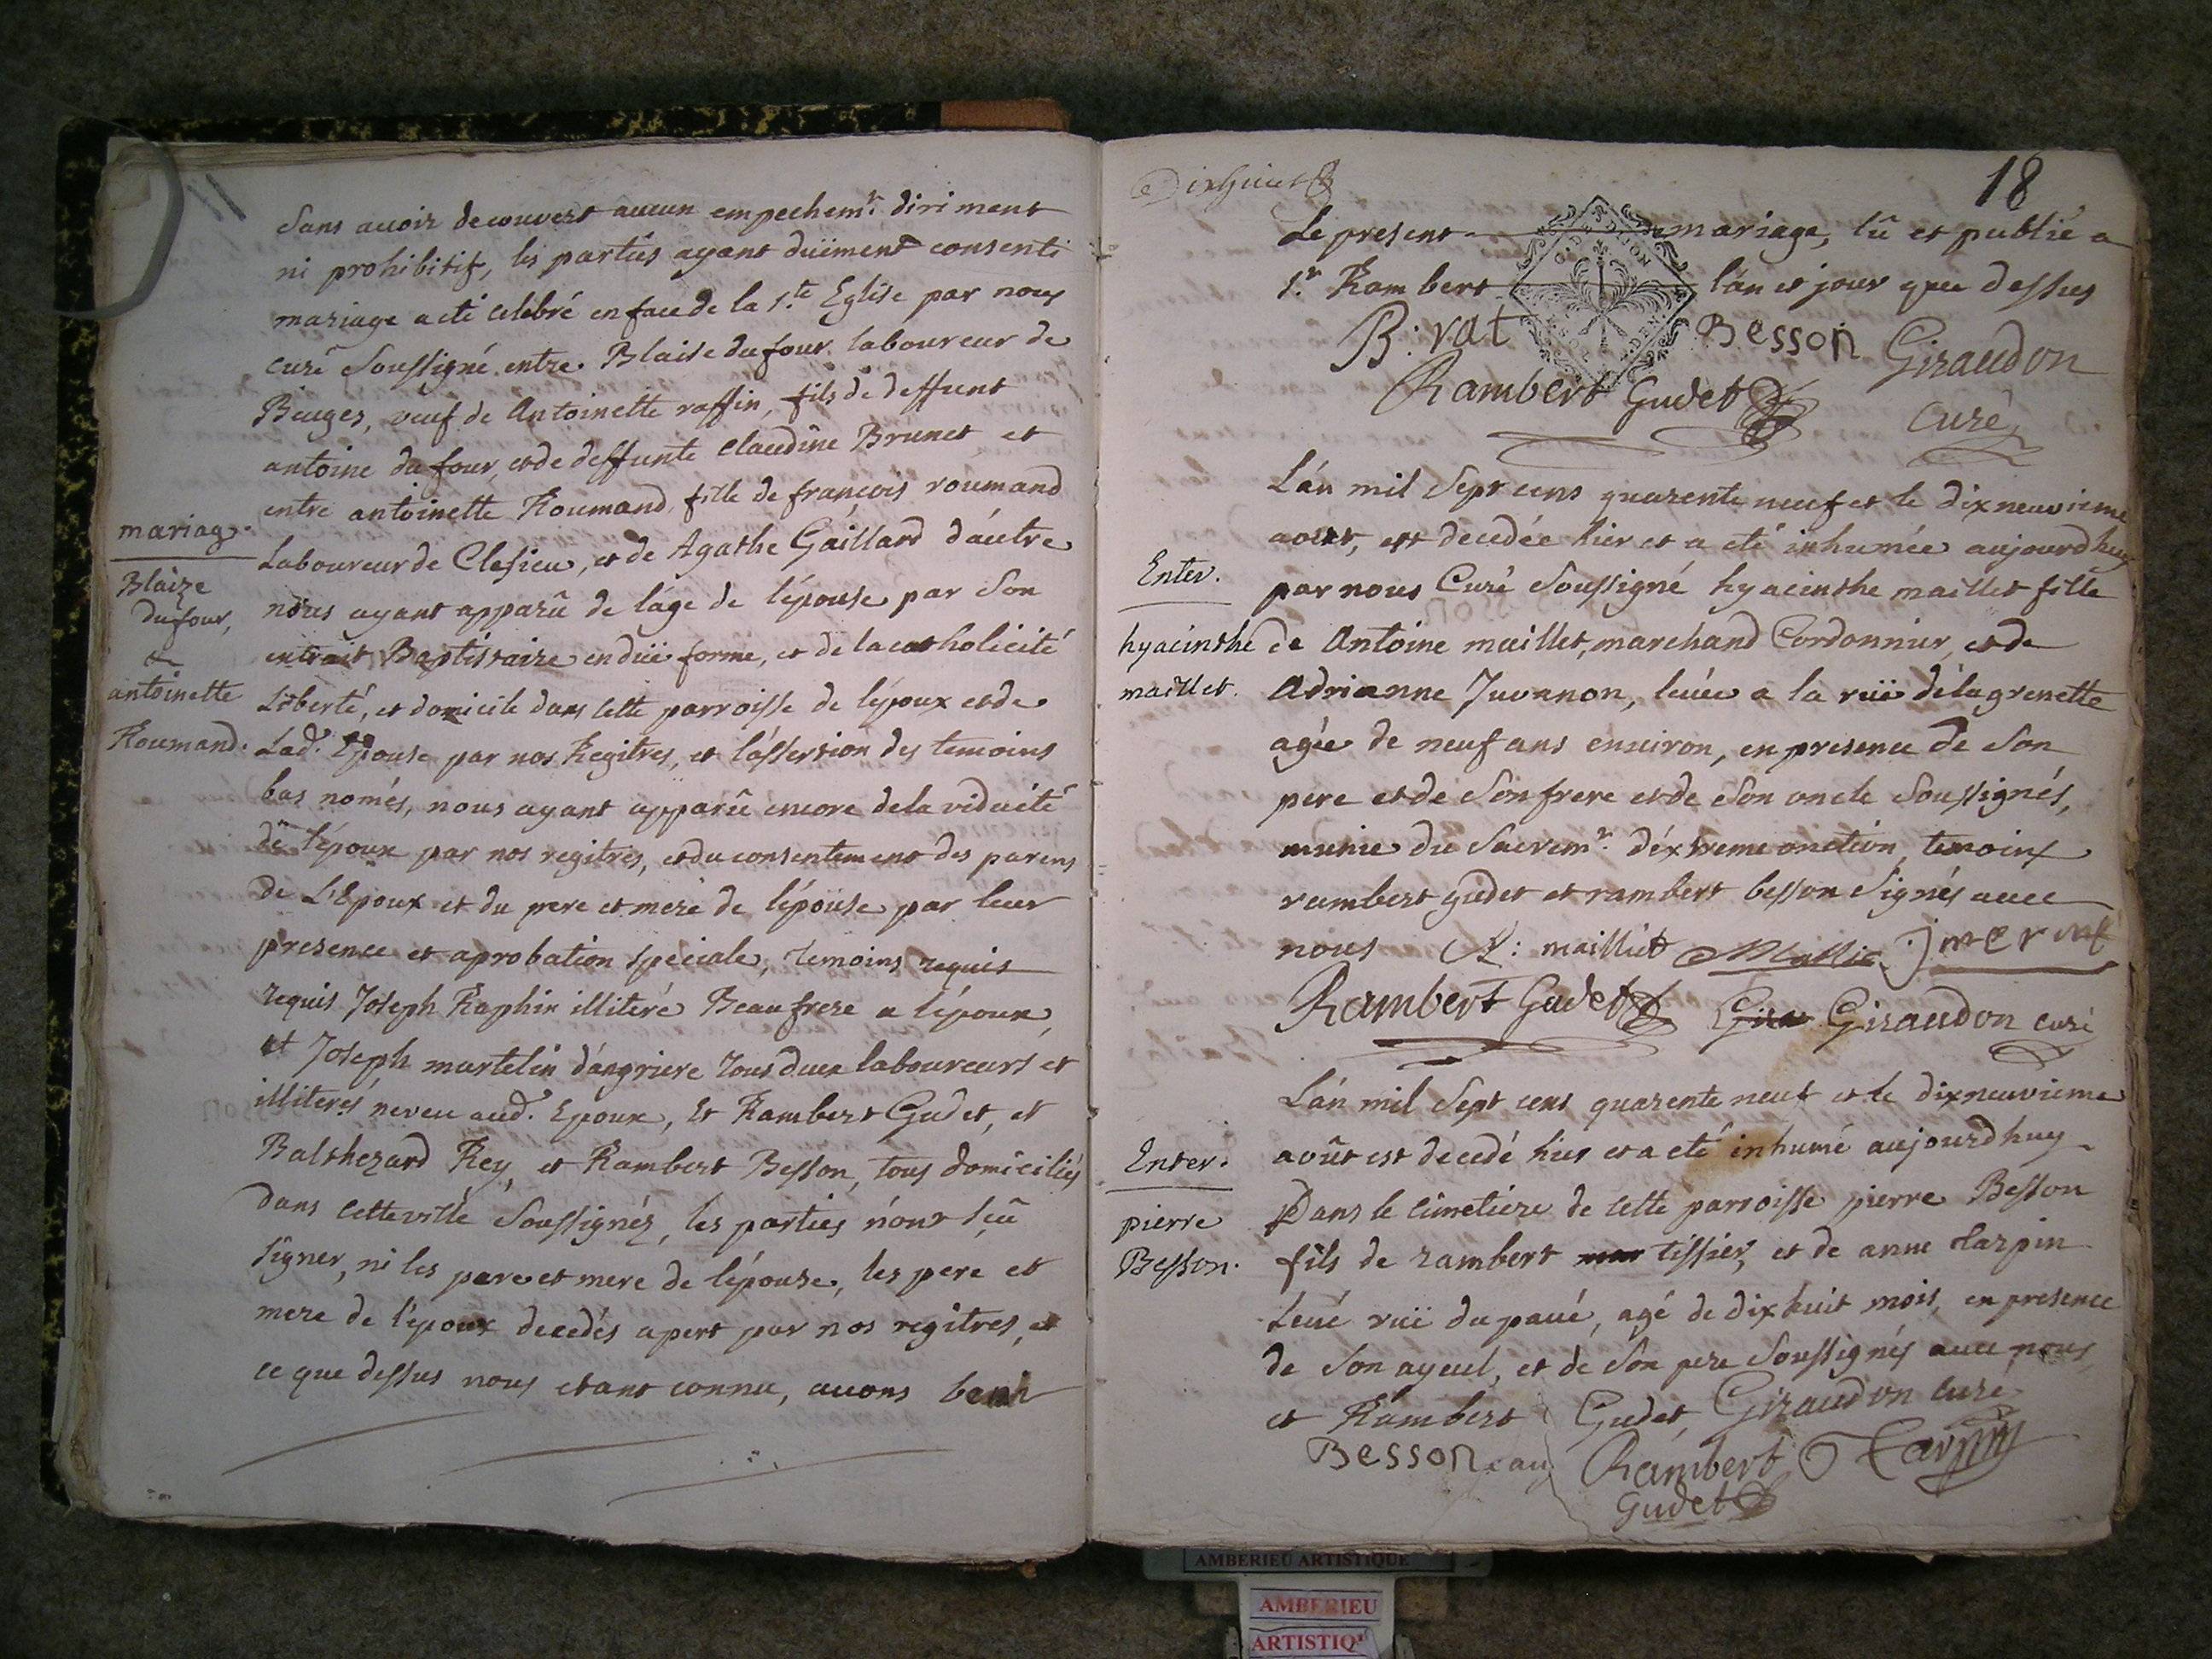 Sans avoir decouvert aucun empechemt. diriment
ni prohibitif, les parties ayant duëment consenti
mariage a eté celebré en face de la Ste. Eglise par nous
curé Soussigné entre Blaise dufour laboureur de
Beuges, veuf de Antoinette raffin, fils de deffunt
antoine du four, et de deffunte Claudine Brunet et
entre antoinette Roumand, fille de françois roumand
Laboureur de Clesieu, et de Agathe Gaillard d'autre
nous ayant apparû de l'âge de l'épouse par Son
extrait Baptistaire en düe forme, et de la catholicité
Liberté, et domicile dans cette parroisse de l'époux et de
Lad. Epouse par nos Regitres, et l'assertion des temoins
bas només, nous ayant apparû encore de la viduité
de l'époux par nos regitres, et du consentement des parens
de L'Epoux et du pere et mere de l'épouse par leur
presence et aprobation speciale, temoins requis
requis Joseph Raphin illiteré Beaufrere a l'époux,
et Joseph martelin d'angriere tous deux laboureurs et
illiterés neveu aud. Epoux, et Rambert Gudet, et
Balthezard Rey, et Rambert Besson, tous domiciliés
dans cette ville Soussignéz, les parties n'ont Sçû
Signer, ni les pere et mere de l'épouse, les pere et
mere de l'époux decedés apert par nos regitres, et
ce que dessus nous etant connu, avons beni
mariag.
Blaize
dufour,
&
antoinette
Roumand.
18
Le present mariage, lû et publié a
St. Rambert l'an et jour que dessus
B: rat Besson Giraudon
Rambert Gudet curé
L'an mil Sept cens quarente neuf et le dix neuvieme
aout, est decedée hier et a eté inhumée aujourd'huy
par nous Curé Soussigné hyacinthe maillet fille
de Antoine maillet, marchand Cordonnier, et de
Adrianne Juvanon, levée a la ruë de la grenette
agée de neuf ans environ, en presence de Son
pere et de Son frere et de Son oncle Soussignés,
munie du Sacremt. d'extreme onction, temoins
rambert gudet et rambert besson Signés avec
nous A: maillet
Rambert Gudet Giraudon curé
Enter.
hyacinthe
maillet.
L'an mil Sept cens quarente neuf et le dix neuvieme
août est decedé hier et a eté inhumé aujourd'huy
Dans le cimetiere de cette parroisse pierre Besson
fils de rambert tissier, et de anne tarpin
Levé ruë du pavé, agé de dix huit mois, en presence
de Son ayeul, et de Son pere Soussignés avec nous
et Rambert Gudet, Giraudon curé
Besson Rambert Tarpin
Gudet
Enter.
pierre
Besson.
AMBERIEU ARTISTIQUE
AMBERIEU
ARTISTIQ